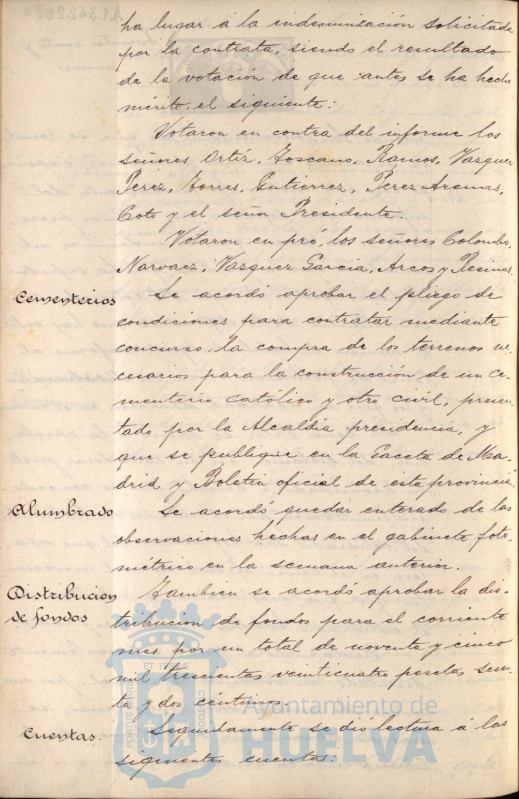 ha lugar á la indemnización solicitada
por la contrata, siendo el resultado
de la votación de que antes se ha hecho
mérito, el siguiente:
Votaron en contra del informe los
señores Ortíz, Toscano, Ramos, Vazquez
Perez, Torres, Gutierrez, Perez Arenas,
Coto y el señor Presidente.
Votaron en pró, los señores Colombo,
Narvaez, Vasquez García, Arcos y Resinas.
Cementerios
Se acordó aprobar el pliego de
condiciones para contratar mediante
concurso, la compra de los terrenos ne-
cesarios para la construcción de un ce-
menterio católico y otro civil, presen-
tado por la Alcaldía presidencia, y
que se publique en la Gaceta de Ma-
drid y Boletín oficial de esta provincia.
Alumbrado
Se acordó quedar enterado de las
observaciones hechas en el gabinete foto-
métrico en la semana anterior.
Distribucion
de fondos
Tambien se acordó aprobar la dis-
tribucion de fondos para el corriente
mes por un total de noventa y cinco
mil trescientas veinticuatro pesetas seten-
ta y dos céntimos.
Cuentas.
Seguidamente se dió lectura á las
siguientes cuentas:
Ayuntamiento de
HUELVA